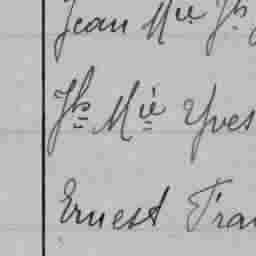 Jean Mie Jh
Jh Mie Yves
Ernest Fra